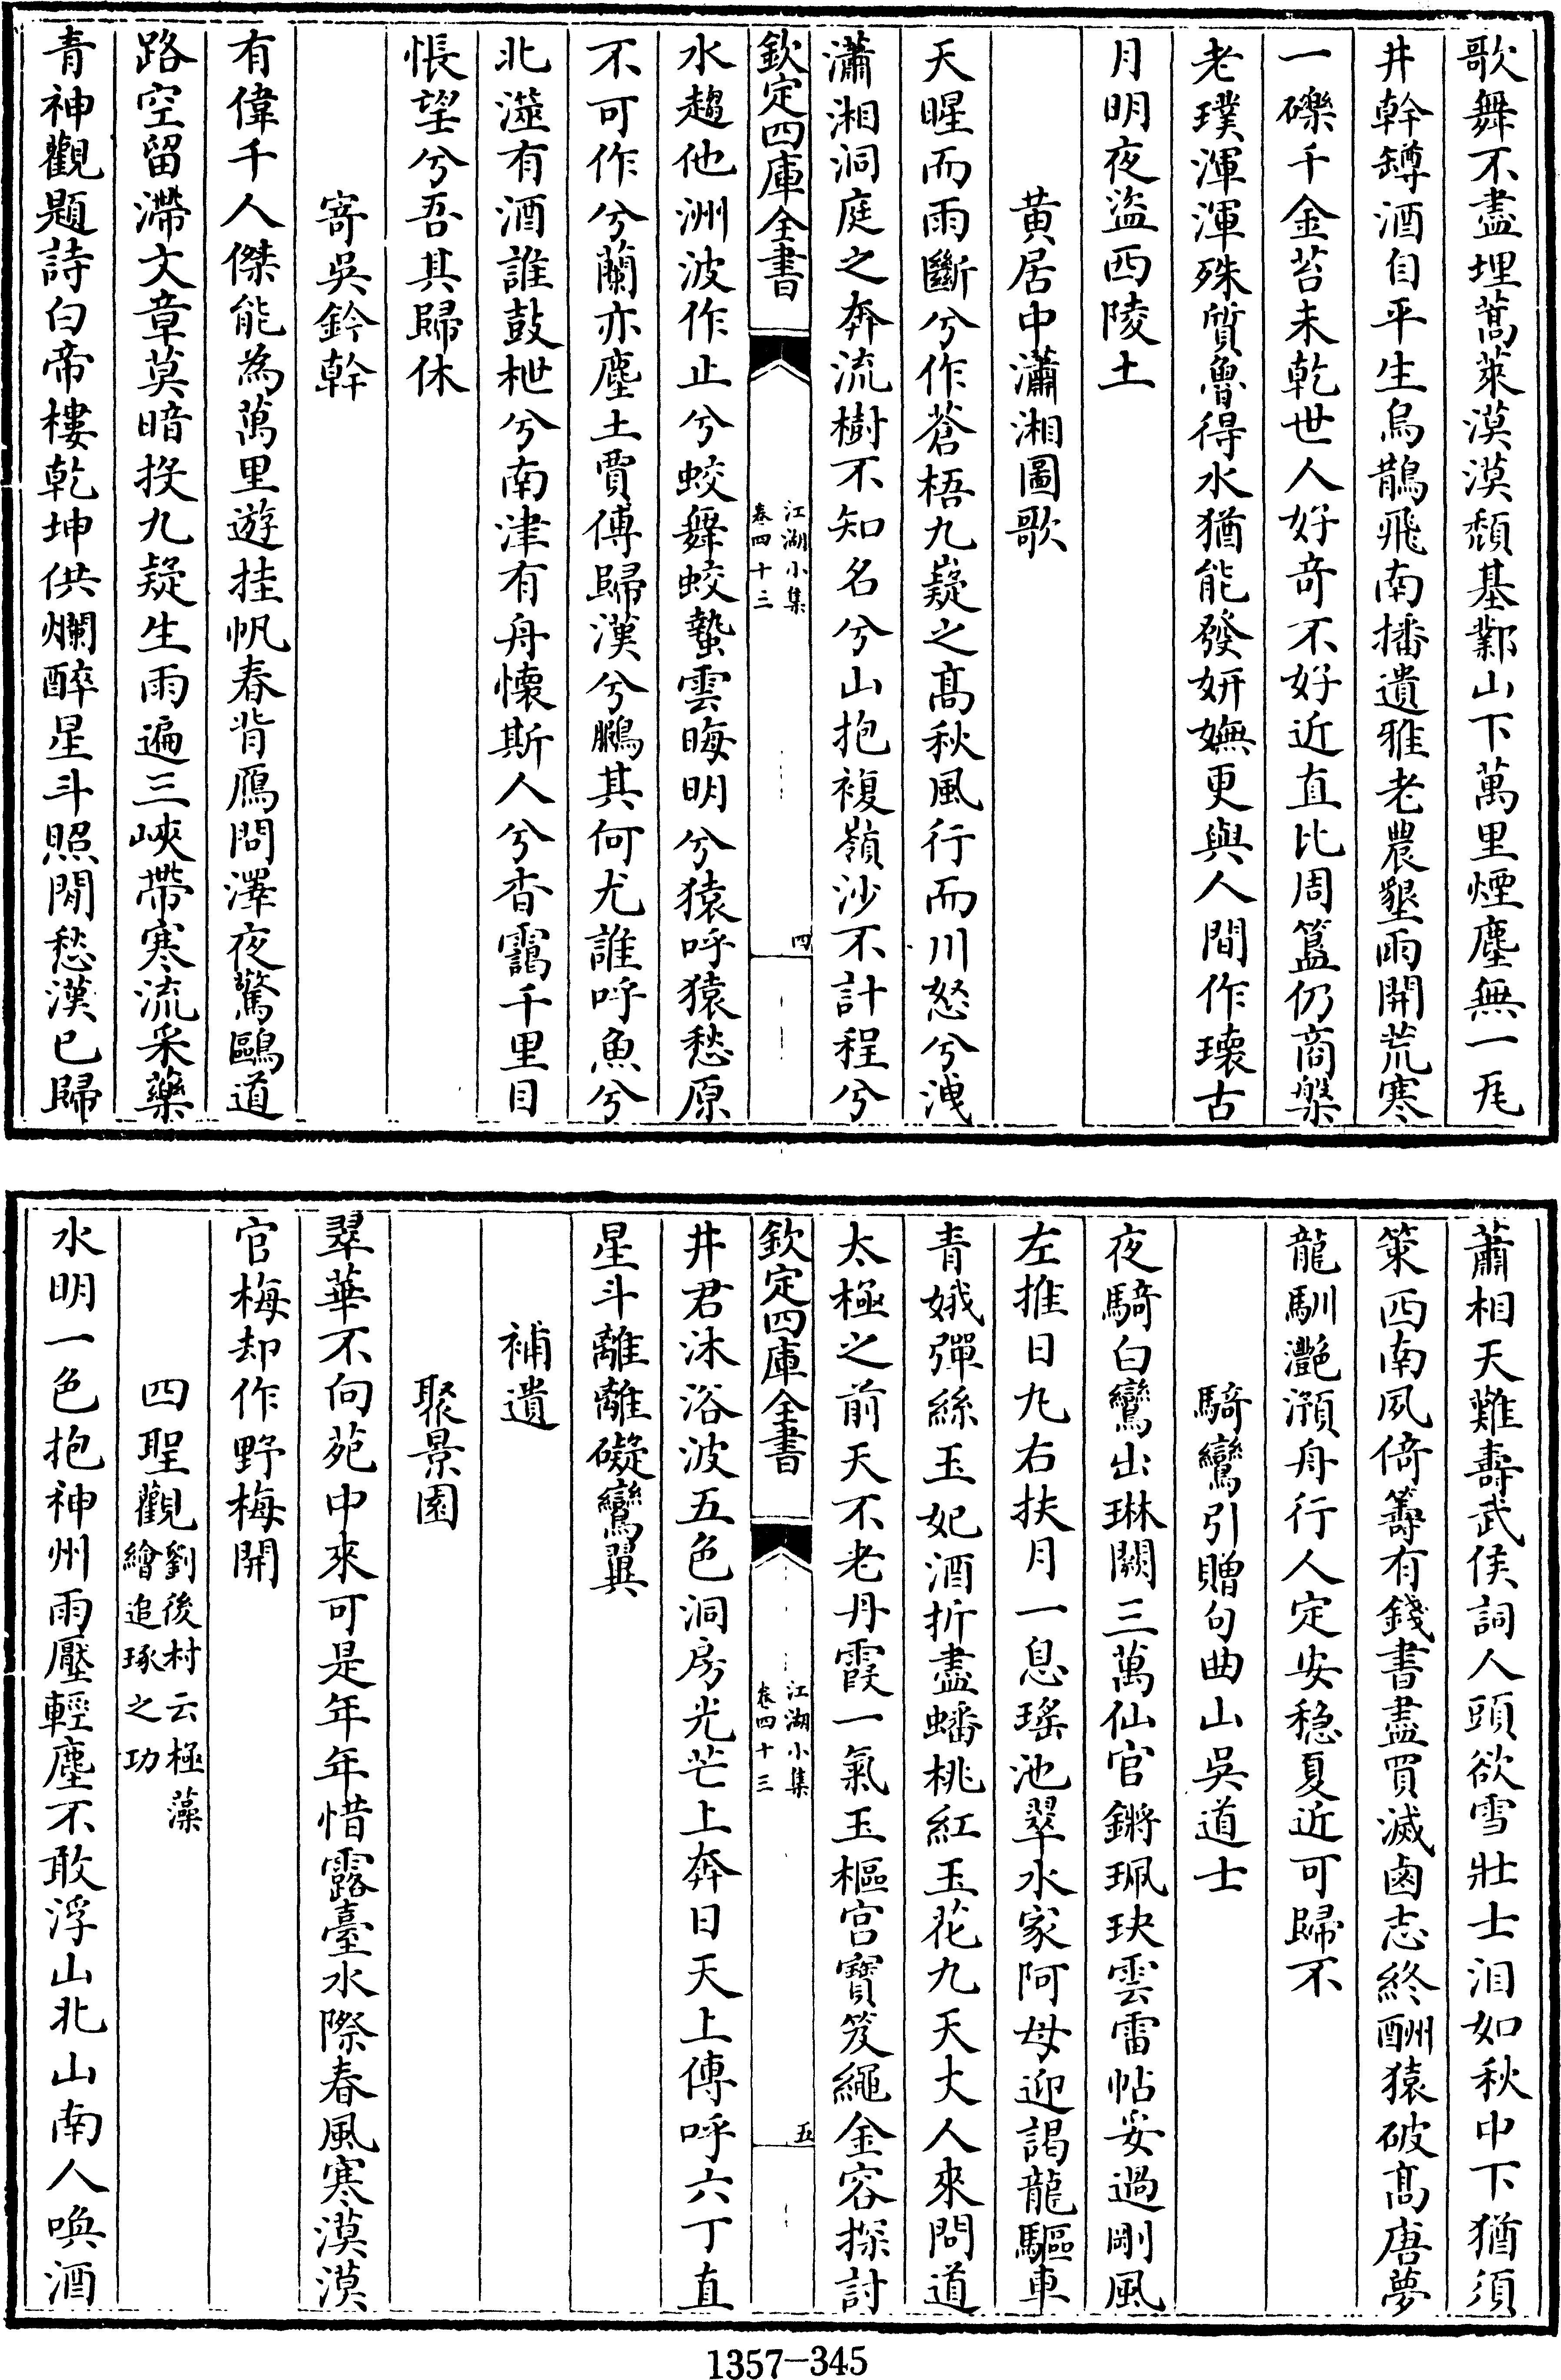 歌舞不盡埋蒿萊漠漠頹基鄴山下萬里煙塵無一瓦
井幹鐏酒自平生烏鵲飛南播遺雅老農墾雨開荒寒
一礫千金苔未乾世人好奇不好近直比周簋仍商槃
老璞渾渾殊質魯得水猶能發妍嫵更與人間作壞古
月明夜盜西陵土
黄居中瀟湘圖歌
天暒而雨斷兮作蒼梧九嶷之髙秋風行而川怒兮洩
瀟湘洞庭之奔流樹不知名兮山抱複嶺沙不計程兮
欽定四庫全書
江湖小集
卷四十三
四
水趨他洲波作止兮蛟舞蛟蟄雲晦明兮猿呼猿愁原
不可作兮蘭亦塵土賈傅歸漢兮鵩其何尤誰呼魚兮
北澨有酒誰鼓枻兮南津有舟懷斯人兮杳靄千里目
悵望兮吾其歸休
寄吳鈐幹
有偉千人傑能為萬里遊挂帆春背鴈問澤夜驚鷗道
路空留滯文章莫暗投九疑生雨遍三峽帶寒流采藥
青神觀題詩白帝樓乾坤供爛醉星斗照閒愁漢已歸
蕭相天難壽武侯詞人頭欲雪壯士泪如秋中下猶須
策西南夙倚籌有錢書盡買滅鹵志終酬猿破髙唐夢
龍馴灔澦舟行人定安穏夏近可歸不
騎鸞引贈句曲山吳道士
夜騎白鸞出琳闕三萬仙官鏘珮玦雲雷帖妥過剛風
左推日九右扶月一息瑤池翠水家阿母迎謁龍驅車
青娥彈絲玉妃酒折盡蟠桃紅玉花九天大人來問道
太極之前天不老丹霞一氣玉樞宫寶笈繩金容探討
欽定四庫全書
江湖小集
卷四十三
五
井君沐浴波五色洞房光芒上奔日天上傳呼六丁直
星斗離離礙鸞翼
補遺
聚景園
翠華不向苑中來可是年年惜露臺水際春風寒漠漠
官梅却作野梅開
四聖觀劉後村云極藻繪追琢之功
水明一色抱神州雨壓輕塵不敢浮山北山南人喚酒
1357-345